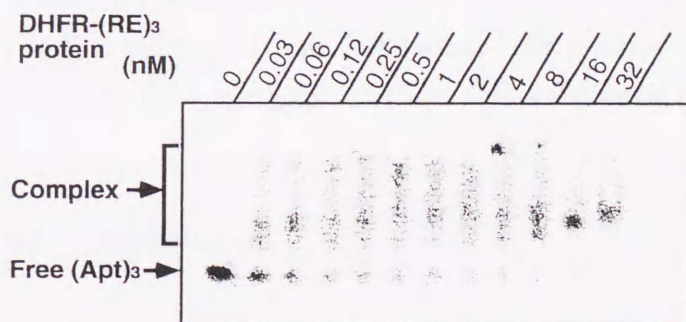 DHFR-(RE)3
protein
(nM)
0 0.03 0.06 0.12 0.25 0.5 1 2 4 8 16 32
Complex
Free (Apt)3